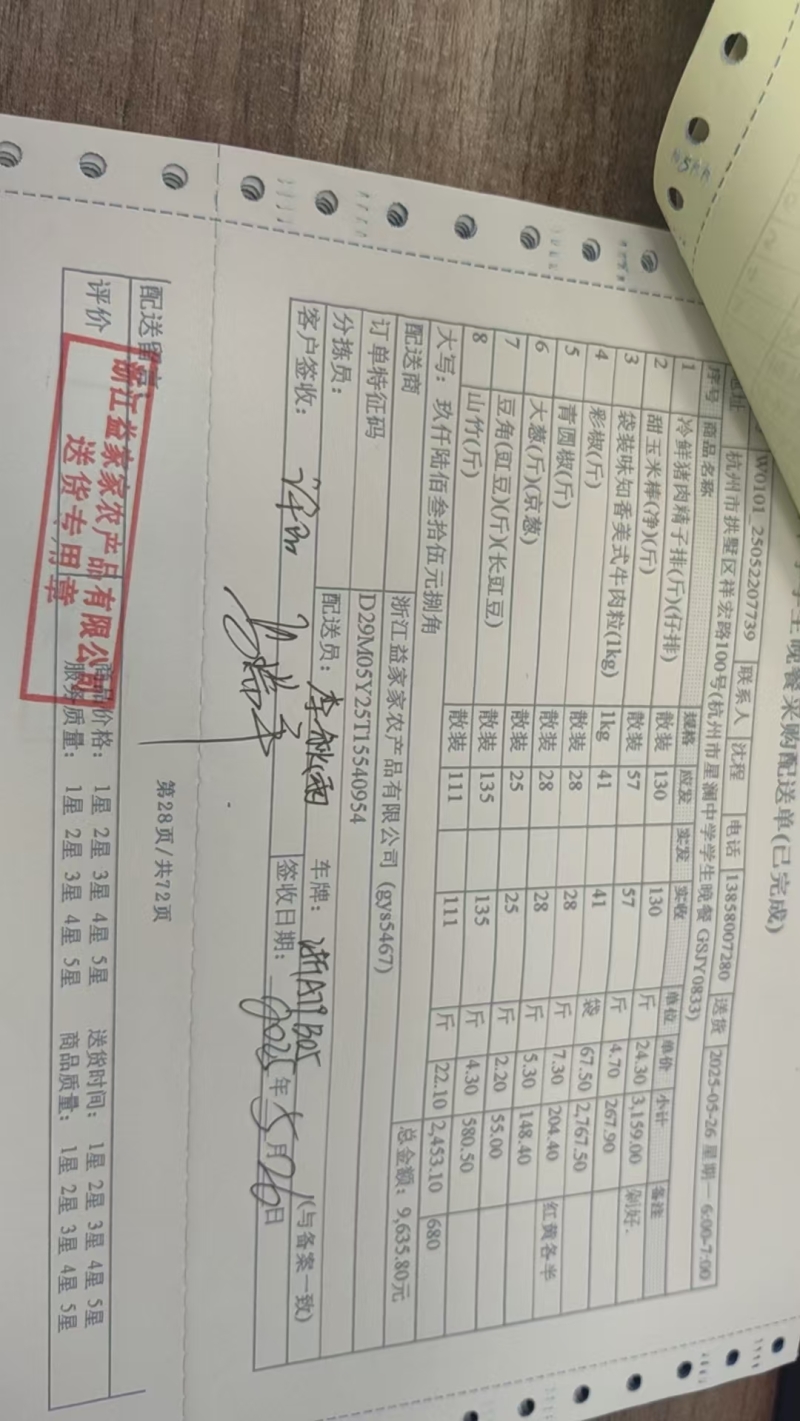 晚餐采购配送单(已完成)
W0101_25052207739 联系人 沈程 电话 13858007280 送货 2025-05-26 星期一 6:00-7:00
地址 杭州市拱墅区祥宏路100号(杭州市星澜中学学生晚餐 GSJY0833)
序号 商品名称 规格 应发 实发 实收 单位 单价 小计 备注
1 冷鲜猪肉精子排(斤)(仔排) 散装 130 130 斤 24.30 3,159.00 剁好.
2 甜玉米棒(净)(斤) 散装 57 57 斤 4.70 267.90
3 袋装味知香美式牛肉粒(1kg) 1kg 41 41 袋 67.50 2,767.50
4 彩椒(斤) 散装 28 28 斤 7.30 204.40 红黄各半
5 青圆椒(斤) 散装 28 28 斤 5.30 148.40
6 大葱(斤)(京葱) 散装 25 25 斤 2.20 55.00
7 豆角(豇豆)(斤)(长豇豆) 散装 135 135 斤 4.30 580.50
8 山竹(斤) 散装 111 111 斤 22.10 2,453.10 680
大写: 玖仟陆佰叁拾伍元捌角 总金额: 9,635.80元
配送商 浙江益家家农产品有限公司 (gys5467)
订单特征码 D29M05Y25T15540954
分拣员: 配送员: 李秋雨 车牌: 浙A79B05 (与备案一致)
客户签收: 签收日期: 2025年5月26日
第28页/共72页
配送留言
评价 商品价格: 1星 2星 3星 4星 5星 送货时间: 1星 2星 3星 4星 5星
服务质量: 1星 2星 3星 4星 5星 商品质量: 1星 2星 3星 4星 5星
浙江益家家农产品有限公司
送货专用章